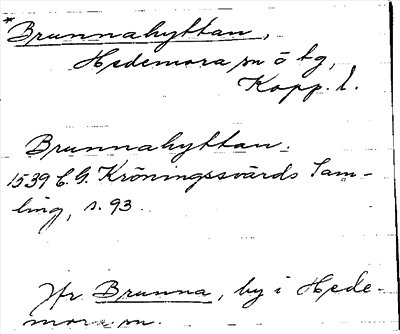 *Brunnahyttan,
Hedemora sn o tg,
Kopp. l.
Brunnahyttan.
1539 C. G. Kröningssvärds Sam-
ling, s. 93.
Jfr Brunna, by i Hede-
mora sn.